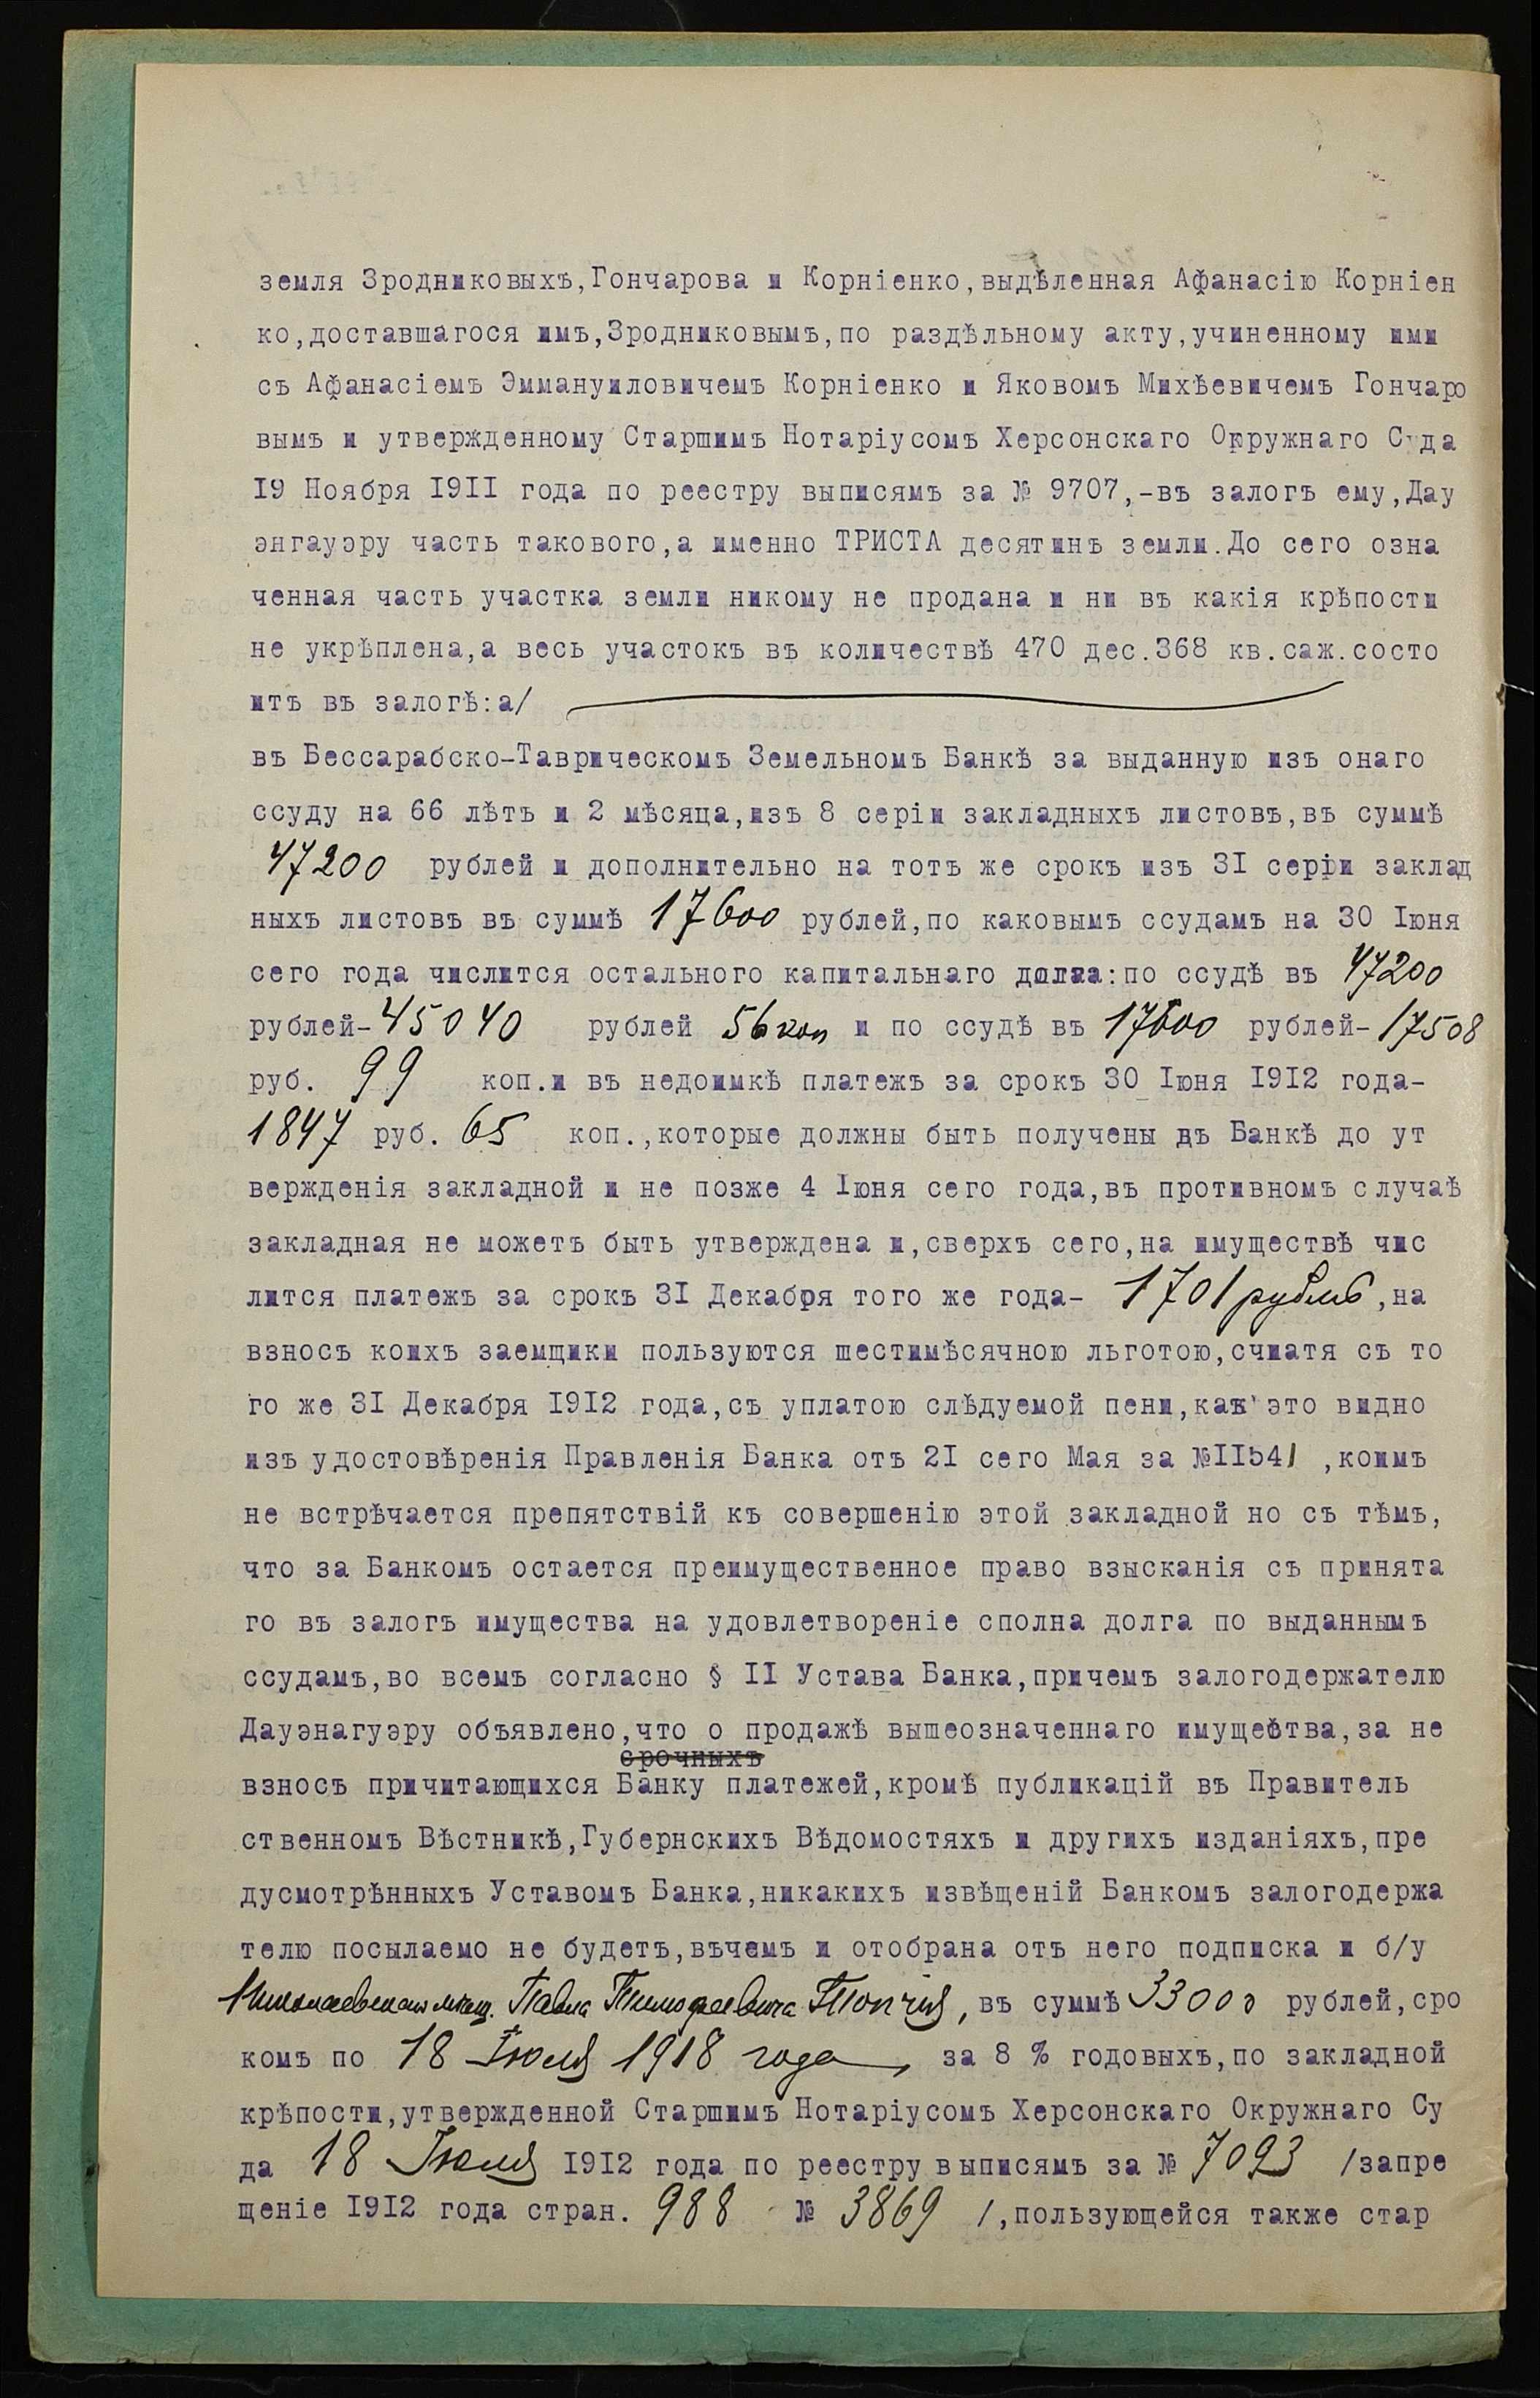 земля Зродниковыхъ,Гончарова и Корніенко,выдѣленная Афанасію Корніен
ко,доставшагося имъ,Зродниковымъ,по раздѣльному акту,учиненному ими
съ Афанасіемъ Эммануиловичемъ Корніенко и Яковомъ Михѣевичемъ Гончаро
вымъ и утвержденному Старшимъ Нотаріусомъ Херсонскаго Окружнаго Суда
I9 Ноября I9II года по реестру выписямъ за № 9707,-въ залогъ ему,Дау
энгауэру часть такового,а именно ТРИСТА десятинъ земли.До сего озна
ченная часть участка земли никому не продана и ни въ какія крѣпости
не укрѣплена,а весь участокъ въ количествѣ 470 дес.368 кв.саж.состо
итъ въ залогѣ:а/
въ Бессарабско-Таврическомъ Земельномъ Банкѣ за выданную изъ онаго
ссуду на 66 лѣтъ и 2 мѣсяца,изъ 8 серіи закладныхъ листовъ,въ суммѣ
47200 рублей и дополнительно на тотъ же срокъ изъ 3I серіи заклад
ныхъ листовъ въ суммѣ 17600 рублей,по каковымъ ссудамъ на 30 Iюня
сего года числится остального капитальнаго долга:по ссудѣ въ 47200
рублей-45040 рублей 56 коп и по ссудѣ въ 17600 рублей-17508
руб. 99 коп.и въ недоимкѣ платежъ за срокъ 30 Iюня I9I2 года-
1847 руб. 65 коп.,которые должны быть получены въ Банкѣ до ут
вержденія закладной и не позже 4 Iюня сего года,въ противномъ случаѣ
закладная не можетъ быть утверждена и,сверхъ сего,на имуществѣ чис
лится платежъ за срокъ 3I Декабря того же года- 1701 рубль,на
взносъ коихъ заемщики пользуются шестимѣсячною льготою,счиатя съ то
го же 3I Декабря I9I2 года,съ уплатою слѣдуемой пени,как' это видно
изъ удостовѣренія Правленія Банка отъ 2I сего Мая за №II541 ,коимъ
не встрѣчается препятствій къ совершенію этой закладной но съ тѣмъ,
что за Банкомъ остается преимущественное право взысканія съ принята
го въ залогъ имущества на удовлетвореніе сполна долга по выданнымъ
ссудамъ,во всемъ согласно § II Устава Банка,причемъ залогодержателю
Дауэнагуэру объявлено,что о продажѣ вышеозначеннаго имущества,за не
срочныхъ
взносъ причитающихся Банку платежей,кромѣ публикацій въ Правитель
ственномъ Вѣстникѣ,Губернскихъ Вѣдомостяхъ и другихъ изданіяхъ,пре
дусмотрѣнныхъ Уставомъ Банка,никакихъ извѣщеній Банкомъ залогодержа
телю посылаемо не будетъ,въчемъ и отобрана отъ него подписка и б/у
Николаевскаго мѣщ. Павла Тимофеевича Топчія, въ суммѣ 33000 рублей,сро
комъ по 18 Iюля 1918 года, за 8 % годовыхъ,по закладной
крѣпости,утвержденной Старшимъ Нотаріусомъ Херсонскаго Окружнаго Су
да 18 Iюля I9I2 года по реестру выписямъ за № 7093 /запре
щеніе I9I2 года стран. 988 № 3869 /,пользующейся также стар